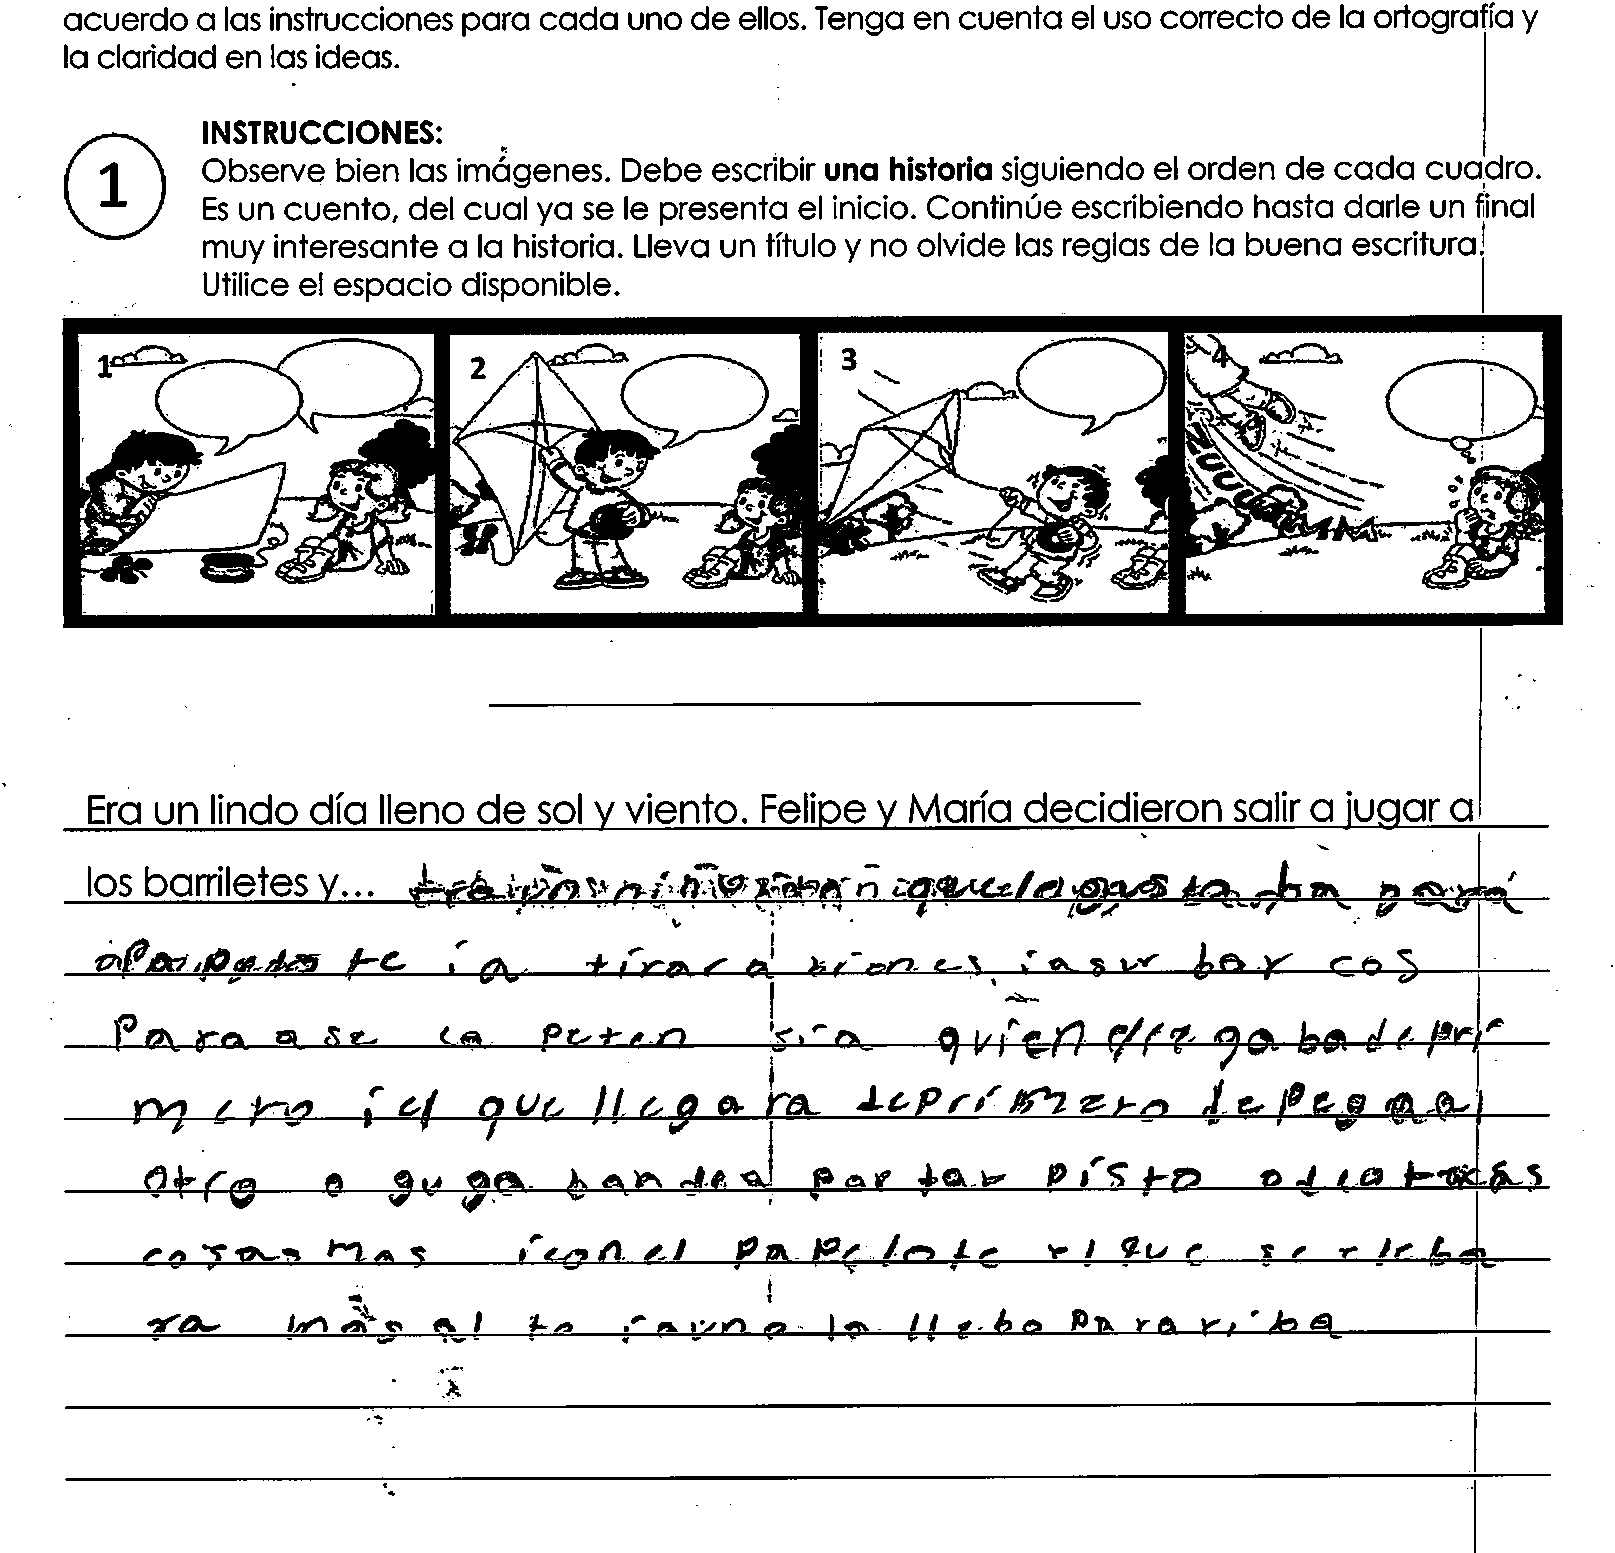 acuerdo a las instrucciones para cada uno de ellos. Tenga en cuenta el uso correcto de la ortografía y
la claridad en las ideas.
INSTRUCCIONES:
1
Observe bien las imágenes. Debe escribir una historia siguiendo el orden de cada cuadro.
Es un cuento, del cual ya se le presenta el inicio. Continúe escribiendo hasta darle un final
muy interesante a la historia. Lleva un título y no olvide las reglas de la buena escritura.
Utilice el espacio disponible.
1 2 3 4
ZUUUUMMM
Era un lindo día lleno de sol y viento. Felipe y María decidieron salir a jugar a
los barriletes y... que le gustaba
te ia tirar a iasur barcos
Para ase la peten sia quien gaba de pri
mero i el que llegara de primero le pega al
otro o guga ban dea por tar pisto o de otras
cosas mas i con el papelote el que se le ba
ra más al to i a uno lo llebo para riba